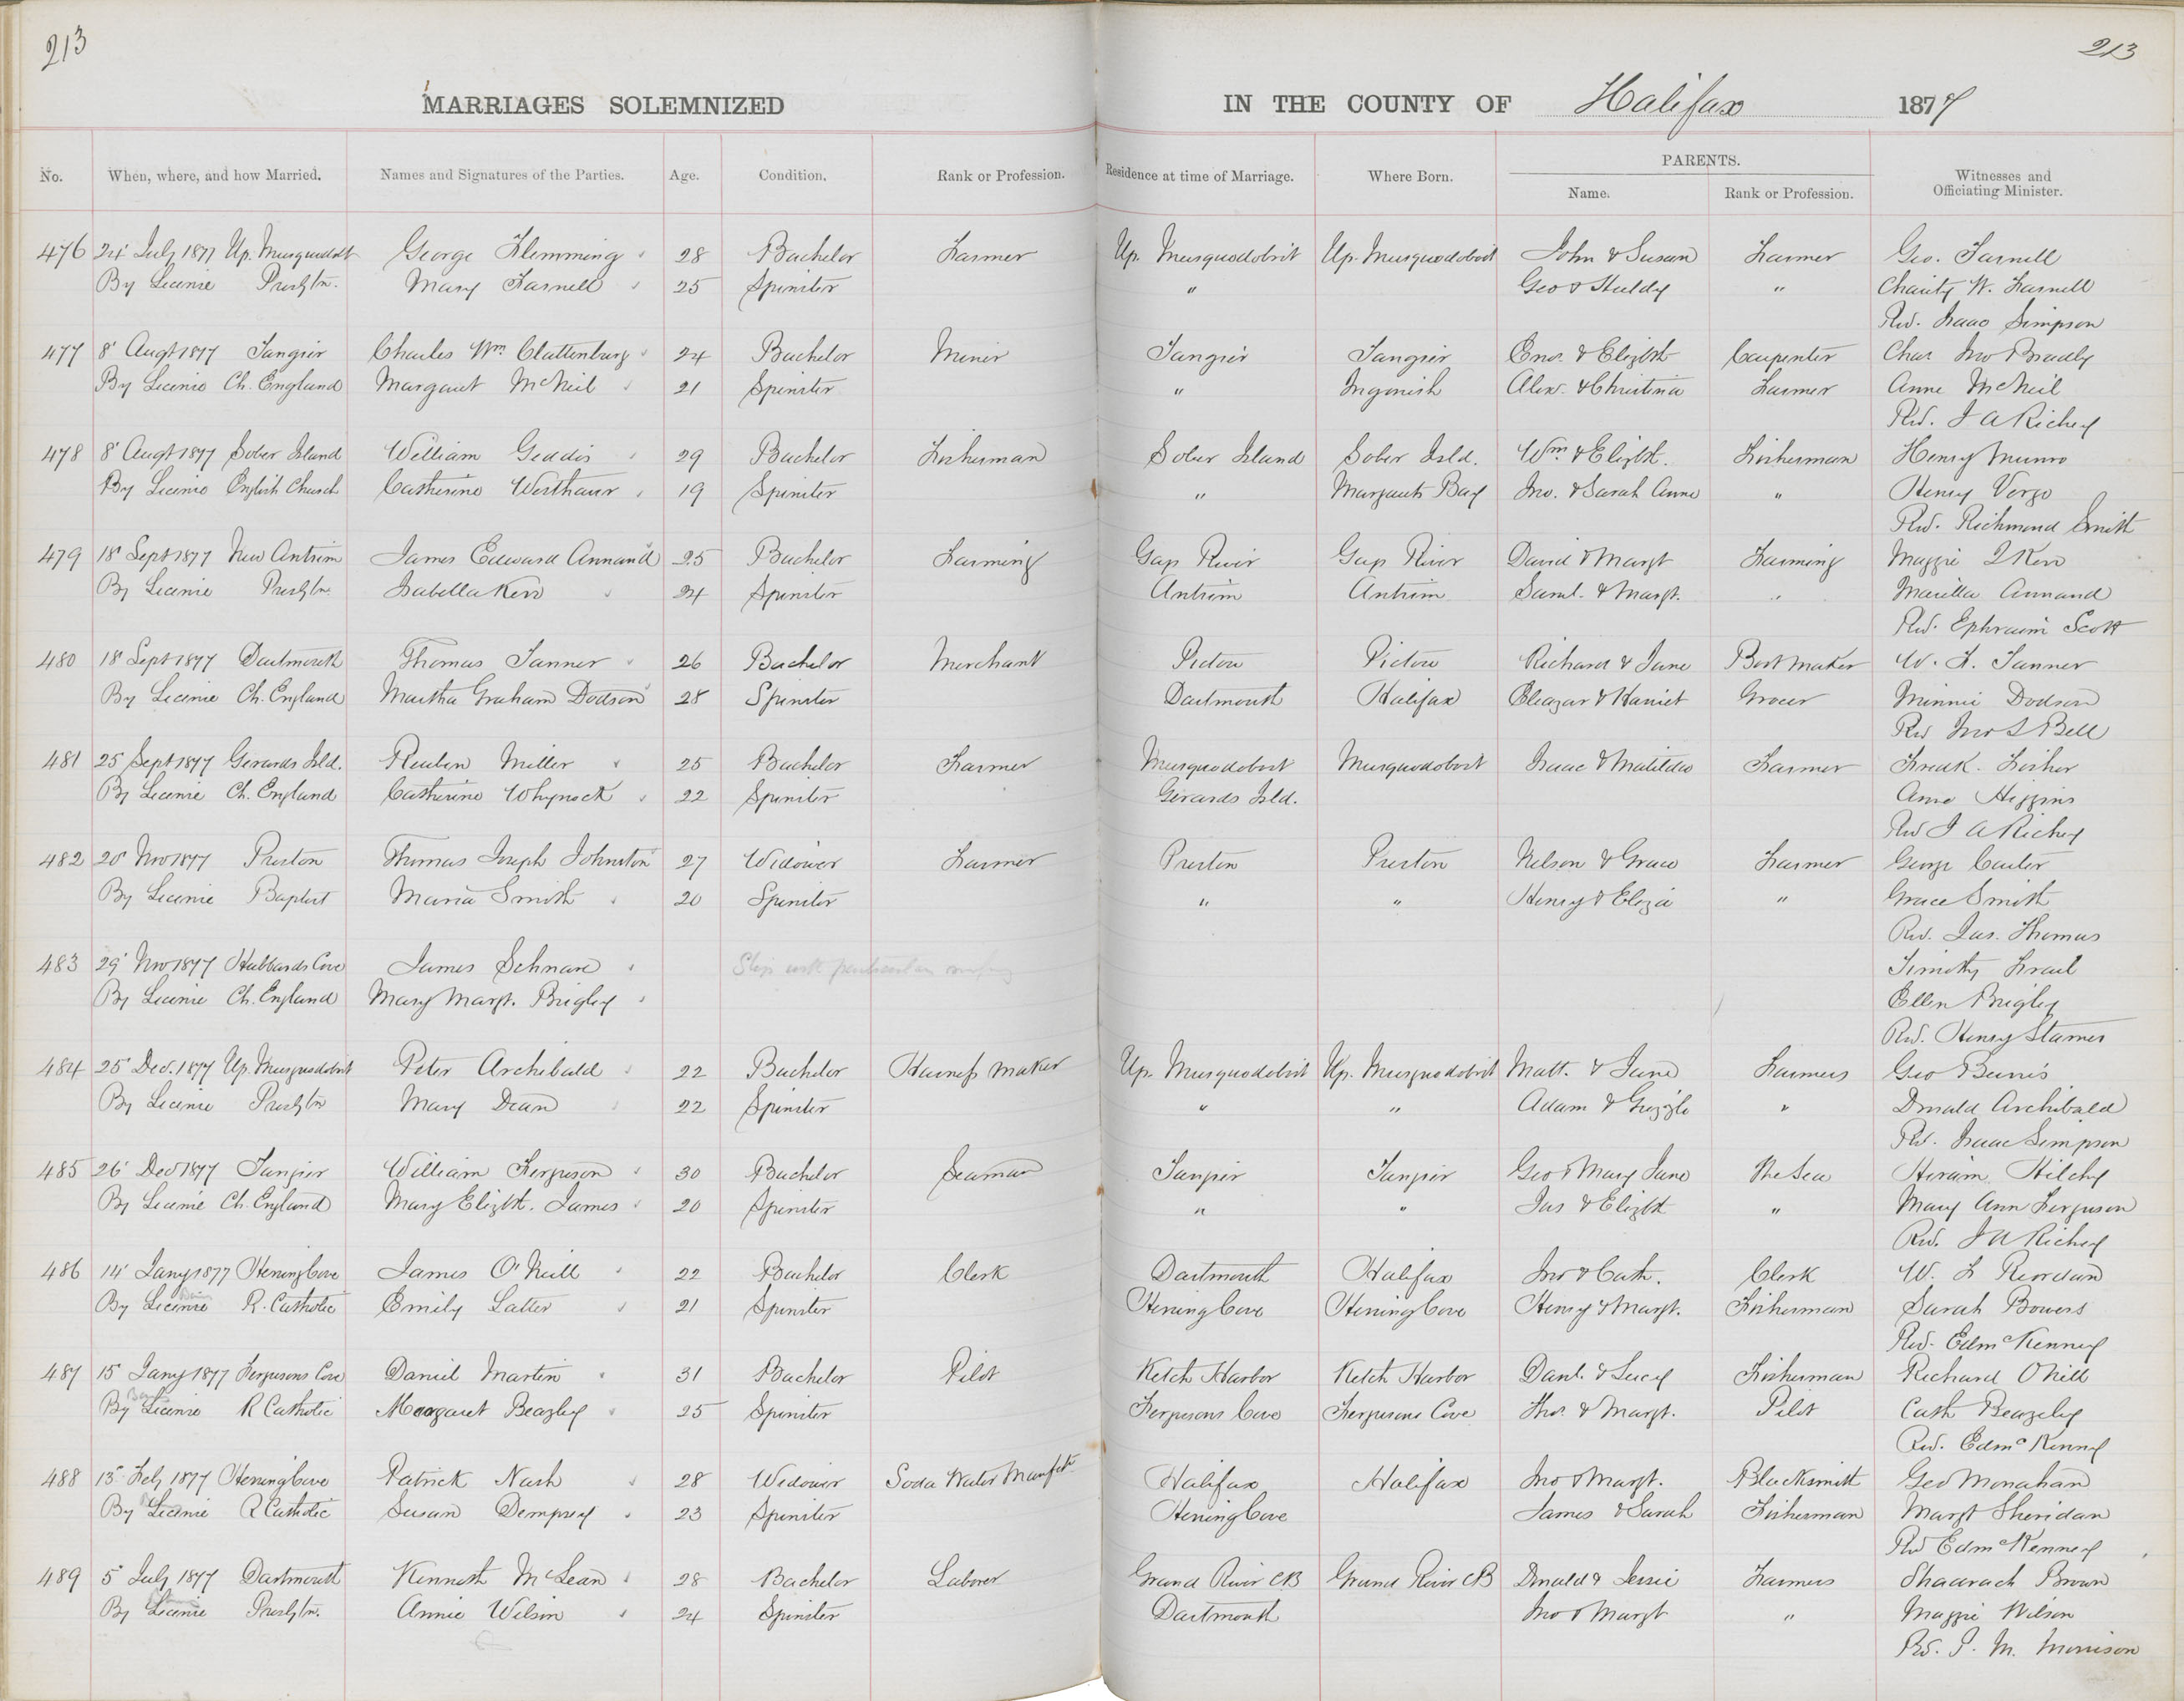 213
213
MARRIAGES SOLEMNIZED IN THE COUNTY OF Halifax 1877
No. When, where, and how Married. Names and Signatures of the Parties. Age. Condition. Rank or Profession. Residence at time of Marriage. Where Born. PARENTS. Name. Rank or Profession. Witnesses and Officiating Minister.
476 24 July 1877 Up. Musquodobt George Flemming 28 Bachelor Farmer Up. Musquodobit Up. Musquodobit John & Susan Farmer Geo. Farnell
By License Presbytn. Mary Farnell 25 Spinster " Geo & Huldy " Charity W. Farnell
Rev. Isaac Simpson
477 8 Augt 1877 Tangier Charles Wm. Clattenburg 24 Bachelor Miner Tangier Tangier Enos. & Elizbth Carpenter Chas Jno Bradly
By License Ch. England Margaret McNeil 21 Spinster " Ingonish Alex. & Christina Farmer Anne McNeil
Rev. J A Richey
478 8 Augt 1877 Sober Island William Geddis 29 Bachelor Fisherman Sober Island Sober Isld. Wm & Elizbth. Fisherman Henry Munro
By License English Church Catherine Westhaver 19 Spinster " Margarets Bay Jno. & Sarah Anne " Henry Vergo
Rev. Richmond Smith
479 18 Sept 1877 New Antrim James Edward Annand 25 Bachelor Farming Gays River Gays River David & Margt Farming Maggie I Kerr
By License Presbytn. Isabella Kerr 24 Spinster Antrim Antrim Saml. & Margt. " Marilla Annand
Rev. Ephraim Scott
480 18 Sept 1877 Dartmouth Thomas Tanner 26 Bachelor Merchant Pictou Pictou Richard & Jane Bootmaker W. F. Tanner
By License Ch. England Martha Graham Dodson 28 Spinster Dartmouth Halifax Eleazar & Harriet Grocer Minnie Dodson
Rev Jno S Bell
481 25 Sept 1877 Gerards Isld. Reuben Miller 25 Bachelor Farmer Musquodobit Musquodobit Isaac & Matilda Farmer Fredk. Fisher
By License Ch. England Catherine Whynock 22 Spinster Gerards Isld. Anne Higgins
Rev J A Richey
482 20 Nov 1877 Preston Thomas Joseph Johnston 27 Widower Farmer Preston Preston Nelson & Grace Farmer George Carter
By License Baptist Maria Smith 20 Spinster " " Henry & Eliza " Grace Smith
Rev. Jas. Thomas
483 29 Nov 1877 Hubbards Cove James Schnare Timothy Israel
By License Ch. England Mary Margt. Brigley Ellen Brigley
Rev. Henry Stamer
484 25 Dec. 1877 Up. Musquodobit Peter Archibald 22 Bachelor Harness Maker Up. Musquodobit Up. Musquodobit Matt. & Jane Farmers Geo Burris
By License Presbytn Mary Dean 22 Spinster " " Adam & Grizzle " Donald Archibald
Rev. Isaac Simpson
485 26 Dec 1877 Tangier William Ferguson 30 Bachelor Seaman Tangier Tangier Geo & Mary Jane The Sea Hiram Hilchy
By License Ch. England Mary Elizbth. James 20 Spinster " " Jas & Elizbth " Mary Ann Ferguson
Rev. J A Richey
486 14 Jany 1877 Herring Cove James O'Neill 22 Bachelor Clerk Dartmouth Halifax Jno & Cath. Clerk W. F Riordan
By License R. Catholic Emily Latter 21 Spinster Herring Cove Herring Cove Henry & Margt. Fisherman Sarah Bowers
Rev. Edmd Kenney
487 15 Jany 1877 Fergusons Cove Daniel Martin 31 Bachelor Pilot Ketch Harbor Ketch Harbor Danl. & Lucy Fisherman Richard ONeill
By License R Catholic Margaret Beazley 25 Spinster Fergusons Cove Fergusons Cove Thos. & Margt. Pilot Cath Beazeley
Rev. Edmd Kenney
488 13 Feby 1877 Herring Cove Patrick Nash 28 Widower Soda Water Manfctr Halifax Halifax Jno & Margt. Blacksmith Geo Monahan
By License R Catholic Susan Dempsey 23 Spinster Herring Cove James & Sarah Fisherman Margt Sheridan
Rev Edmd Kenney
489 5 July 1877 Dartmouth Kenneth McLean 28 Bachelor Laborer Grand River CB Grand River CB Donald & Jessie Farmers Shadrach Brown
By License Presbytn. Annie Wilson 24 Spinster Dartmouth Jno & Margt " Maggie Wilson
Rev. P. M. Morrison